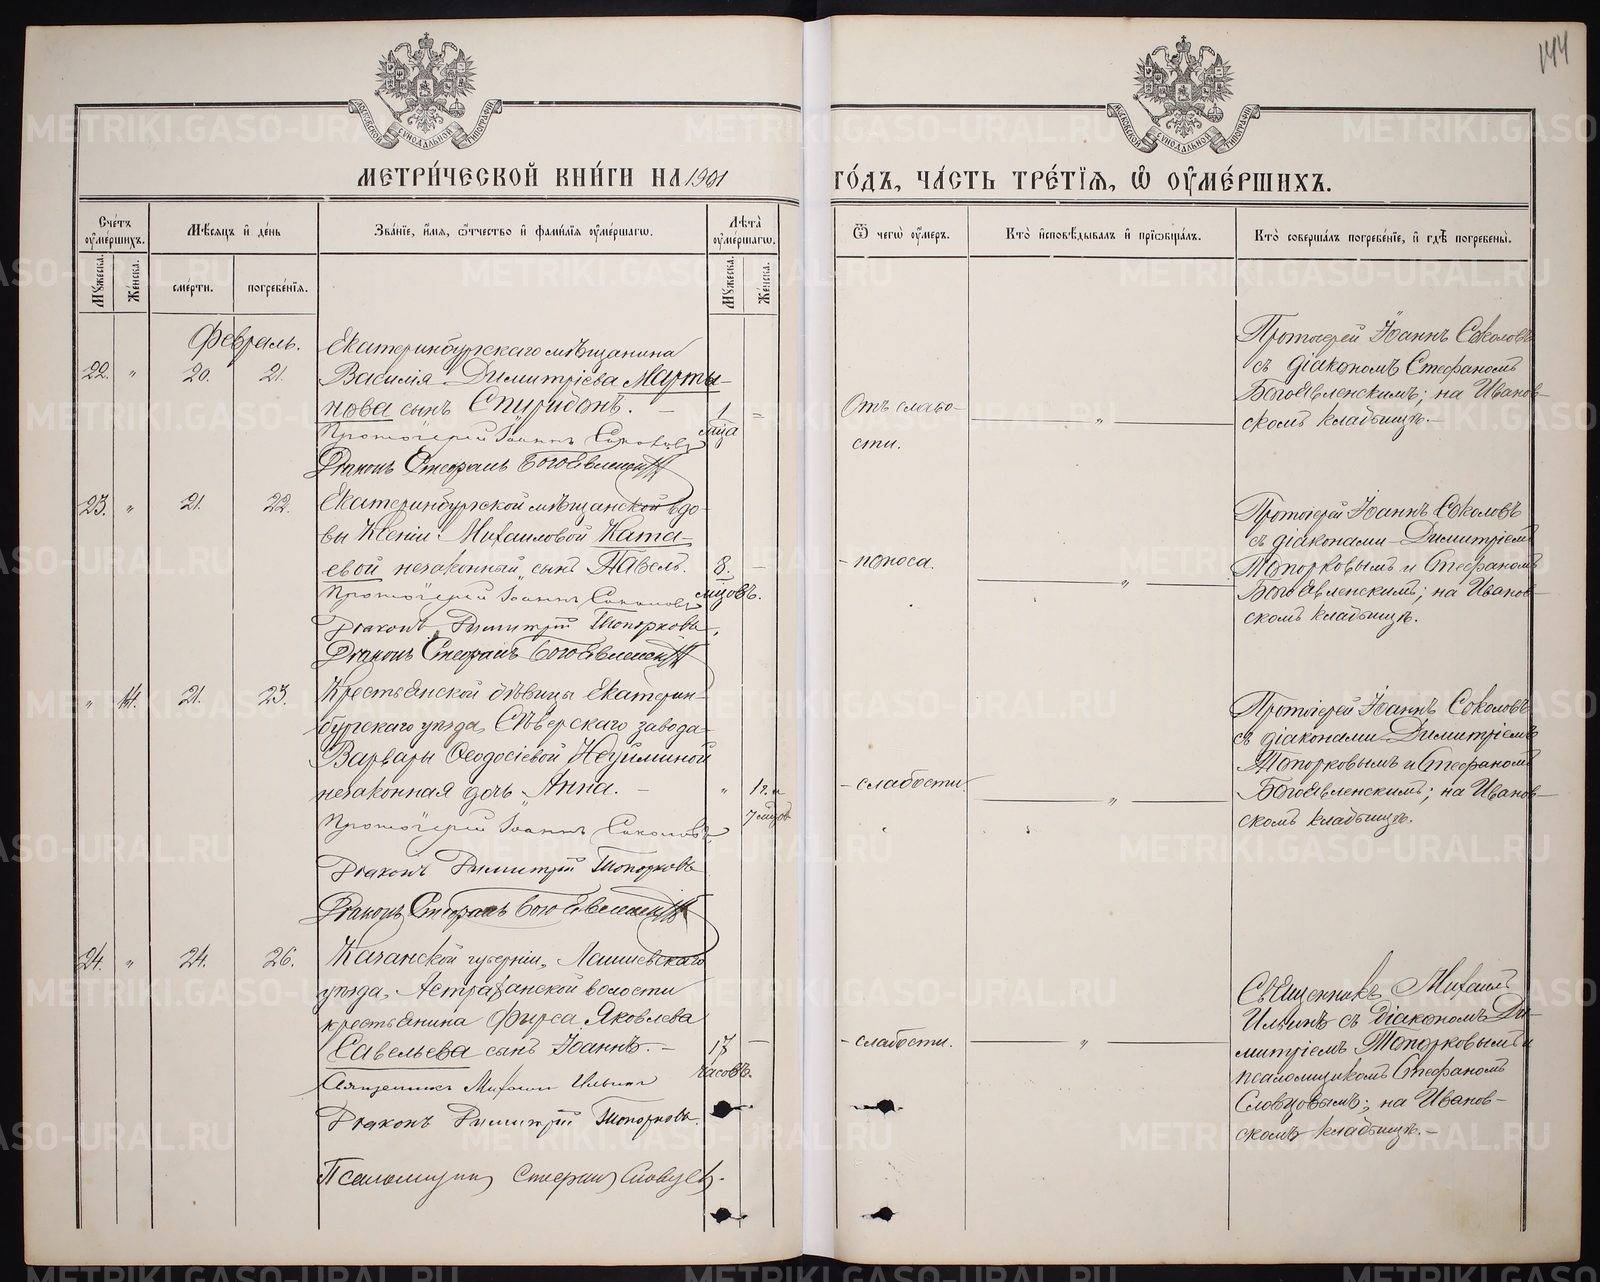 144
МОСКОВСКОЙ СѴНОДАЛЬНОЙ ТИПОГРАФІИ
МОСКОВСКОЙ СѴНОДАЛЬНОЙ ТИПОГРАФІИ
МЕТРИ́ЧЕСКОЙ КНИ́ГИ НА 1901 ГО́ДЪ, ЧА́СТЬ ТРЕ́ТІѦ, Ѡ ОУМЕ́РШИХЪ.
Сче́тъ оуме́ршихъ.
Мѣ́сяцъ и де́нь
Зва́ніе, и́мя, ѻ́тчество и фами́лія оуме́ршагѡ.
Лѣта̀ оуме́ршагѡ.
Ѿ чегѡ̀ оу́меръ.
Кто̀ исповѣ́дывалъ и пріѡбща́лъ.
Кто̀ соверша́лъ погребе́ніе, и гдѣ̀ погребены̀.
Му́жеска.
Же́нска.
сме́рти.
погребе́нія.
Му́жеска.
Же́нска.
Февраль.
22. " 20. 21.
Екатеринбургскаго мѣщанина
Василія Димитріева Марты-
нова сынъ Спиридонъ. –
1 мѣца –
Протоіерей Іоаннъ Соколовъ
Діаконъ Стефанъ Богоявленскій
Отъ слабо-
сти.
"
Протоіерей Іоаннъ Соколовъ
съ діакономъ Стефаномъ
Богоявленскимъ; на Иванов-
скомъ кладбищѣ. –
23. " 21. 22.
Екатеринбургской мѣщанской вдо-
вы Ксеніи Михаиловой Ката-
евой незаконный сынъ Павелъ.
8. мѣцовъ. –
Протоіерей Іоаннъ Соколовъ
Діаконъ Димитрій Топорковъ.
Діаконъ Стефанъ Богоявленскій
- поноса.
"
Протоіерей Іоаннъ Соколовъ
съ діаконами Димитріемъ
Топорковымъ и Стефаномъ
Богоявленскимъ; на Иванов-
скомъ кладбищѣ.
" 14. 21. 23.
Крестьянской дѣвицы Екатерин-
бургскаго уѣзда, Сѣверскаго завода
Варвары Ѳеодосіевой Неуйминой
незаконная дочь Анна. –
" 1 г. и
7 мѣцов
Протоіерей Іоаннъ Соколовъ
Діаконъ Димитрій Топорковъ
Діаконъ Стефанъ Богоявленскій
- слабости.
"
Протоіерей Іоаннъ Соколовъ
съ діаконами Димитріемъ
Топорковымъ и Стефаномъ
Богоявленскимъ; на Иванов-
скомъ кладбищѣ.
24. " 24. 26.
Казанской губерніи, Лаишевскаго
уѣзда, Астраханской волости
крестьянина Фирса Яковлева
Савельева сынъ Іоаннъ. –
17 часовъ. –
Священникъ Михаилъ Ильинъ
Діаконъ Димитрій Топорковъ.
Псаломщикъ Стефанъ Словцовъ.
- слабости.
"
Священникъ Михаилъ
Ильинъ съ діакономъ Ди-
митріемъ Топорковымъ и
псаломщикомъ Стефаномъ
Словцовымъ; на Иванов-
скомъ кладбищѣ. –
METRIKI.GASO-URAL.RU